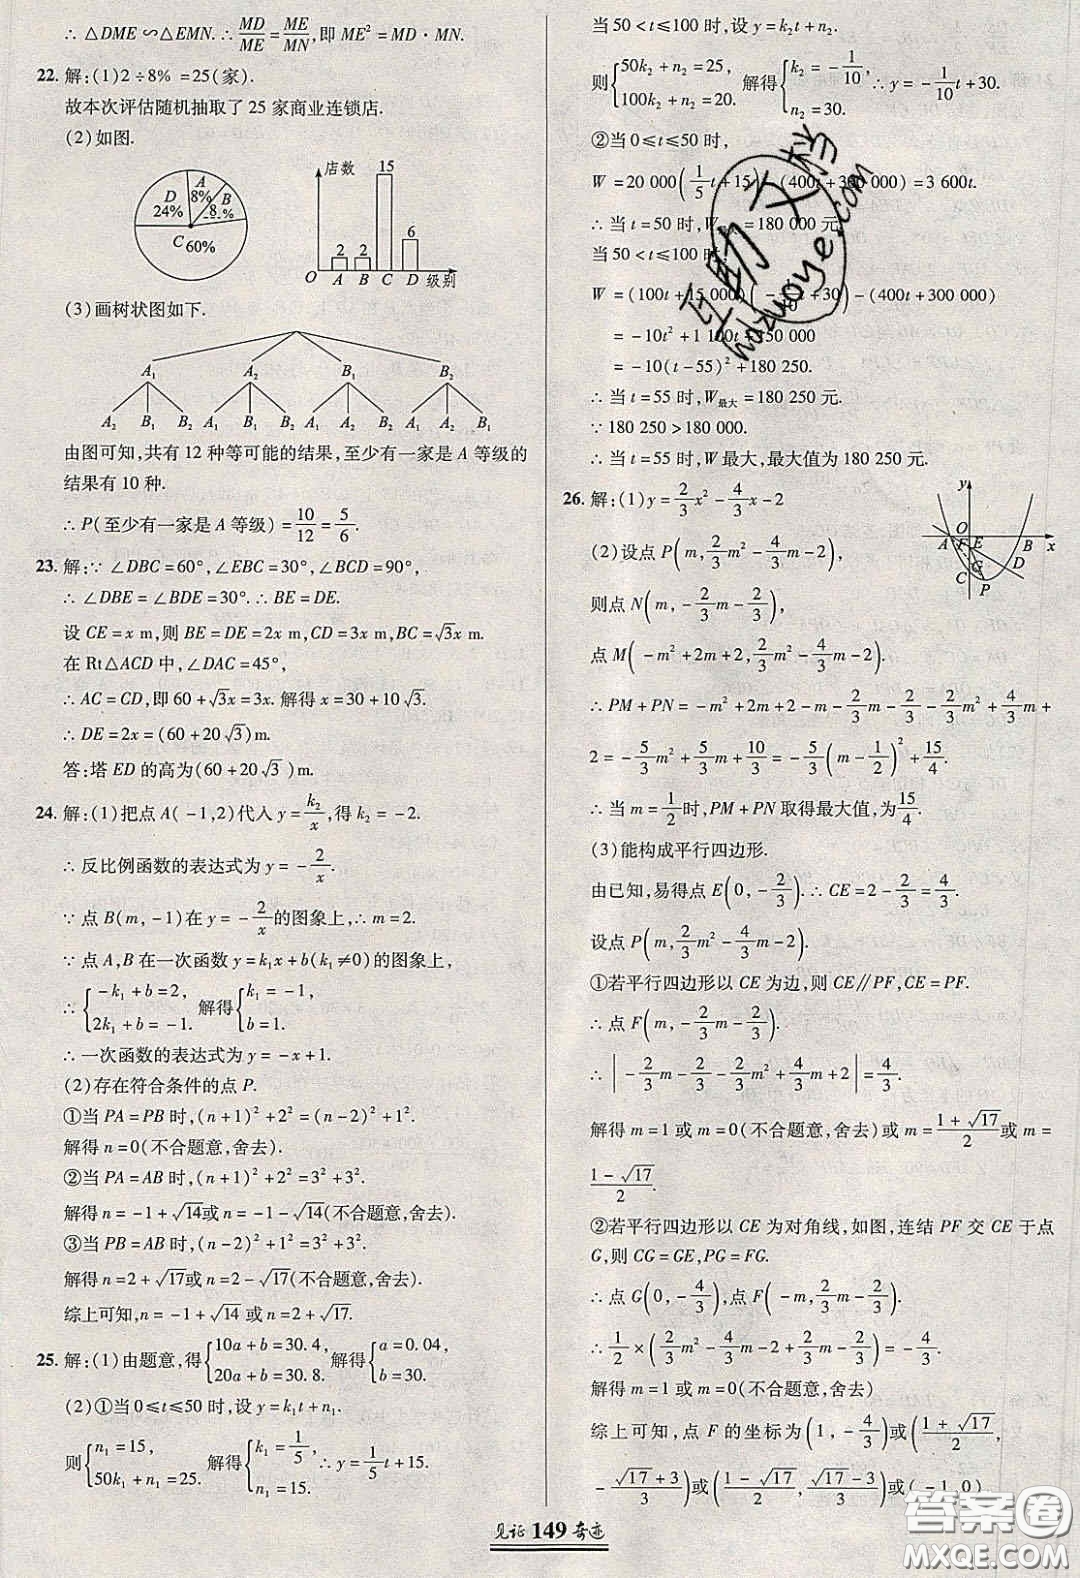 ∴ △DME∽△EMN. ∴ MD/ME = ME/MN, 即 ME² = MD·MN.
22. 解:(1)2÷8% =25(家).
故本次评估随机抽取了 25 家商业连锁店.
(2)如图.
A 8%
B
D 24%
C 60%
店数
15
6
2 2
O A B C D 级别
(3)画树状图如下.
A₁ A₂ B₁ B₂
A₂ B₁ B₂ A₁ B₁ B₂ A₁ A₂ B₂ A₁ A₂ B₁
由图可知,共有 12 种等可能的结果,至少有一家是 A 等级的
结果有 10 种.
∴ P(至少有一家是 A 等级) = 10/12 = 5/6.
23. 解:∵ ∠DBC=60°,∠EBC=30°,∠BCD=90°,
∴ ∠DBE=∠BDE=30°. ∴ BE=DE.
设 CE=x m,则 BE=DE=2x m,CD=3x m,BC=√3x m.
在 Rt△ACD 中,∠DAC=45°,
∴ AC=CD,即 60+√3x=3x. 解得 x=30+10√3.
∴ DE=2x=(60+20√3)m.
答:塔 ED 的高为(60+20√3)m.
24. 解:(1)把点 A(-1,2)代入 y=k₂/x,得 k₂=-2.
∴ 反比例函数的表达式为 y=-2/x.
∵ 点 B(m,-1)在 y=-2/x 的图象上,∴ m=2.
∵ 点 A,B 在一次函数 y=k₁x+b(k₁≠0)的图象上,
∴ {-k₁+b=2, 2k₁+b=-1. 解得 {k₁=-1, b=1.
∴ 一次函数的表达式为 y=-x+1.
(2)存在符合条件的点 P.
①当 PA=PB 时,(n+1)²+2²=(n-2)²+1².
解得 n=0(不合题意,舍去).
②当 PA=AB 时,(n+1)²+2²=3²+3².
解得 n=-1+√14或 n=-1-√14(不合题意,舍去).
③当 PB=AB 时,(n-2)²+1²=3²+3².
解得 n=2+√17或 n=2-√17(不合题意,舍去).
综上可知,n=-1+√14 或 n=2+√17.
25. 解:(1)由题意,得{10a+b=30.4, 20a+b=30.8. 解得{a=0.04, b=30.
(2)①当 0≤t≤50 时,设 y=k₁t+n₁.
则{n₁=15, 50k₁+n₁=25. 解得{k₁=1/5, n₁=15. ∴ y=1/5t+15.
当 50<t≤100 时,设 y=k₂t+n₂.
则{50k₂+n₂=25, 100k₂+n₂=20. 解得{k₂=-1/10, n₂=30. ∴ y=-1/10t+30.
②当 0≤t≤50 时,
W=20 000(1/5t+15)-(400t+300 000)=3 600t.
∴ 当 t=50 时,W最大=180 000 元.
当 50<t≤100 时,
W=(100t+15 000)(-1/10t+30)-(400t+300 000)
=-10t²+1 100t+150 000
=-10(t-55)²+180 250.
∴ 当 t=55 时,W最大=180 250 元.
∵ 180 250>180 000.
∴ 当 t=55 时,W 最大,最大值为 180 250 元.
26. 解:(1)y=2/3x²-4/3x-2
y
A O B x
F E
G D
C P
(2)设点 P(m,2/3m²-4/3m-2),
则点 N(m,-2/3m-2/3),
点 M(-m²+2m+2,2/3m²-4/3m-2).
∴ PM+PN=-m²+2m+2-m-2/3m-2/3-2/3m²+4/3m+
2=-5/3m²+5/3m+10/3=-5/3(m-1/2)²+15/4.
∴ 当 m=1/2时,PM+PN 取得最大值,为15/4.
(3)能构成平行四边形.
由已知,易得点 E(0,-2/3). ∴ CE=2-2/3=4/3.
设点 P(m,2/3m²-4/3m-2).
①若平行四边形以 CE 为边,则 CE∥PF,CE=PF.
∴ 点 F(m,-2/3m-2/3).
∴ |-2/3m-2/3-2/3m²+4/3m+2|=4/3.
解得 m=1 或 m=0(不合题意,舍去)或 m=(1+√17)/2或 m=
(1-√17)/2.
②若平行四边形以 CE 为对角线,如图,连结 PF 交 CE 于点
G,则 CG=GE,PG=FG.
∴ 点 G(0,-4/3),点 F(-m,2/3m-2/3).
∴ 1/2×(2/3m²-4/3m-2+2/3m-2/3)=-4/3.
解得 m=1 或 m=0(不合题意,舍去)
综上可知,点 F 的坐标为(1,-4/3)或((1+√17)/2,
-(√17+3)/3)或((1-√17)/2,(√17-3)/3)或(-1,0)
见证149奇迹
互助文档
hdzuoye.com
答案圈
MXQE.COM